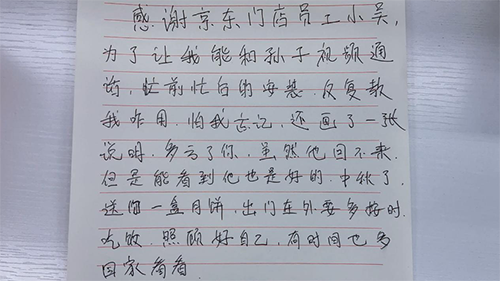 感谢京东门店员工小吴,
为了让我能和孙子视频通
话,忙前忙后的安装.反复教
我咋用.怕我忘记,还画了一张
说明.多亏了你,虽然他回不来.
但是能看到他也是好的.中秋了.
送你一盒月饼,出门在外要多按时
吃饭.照顾好自己,有时间也多
回家看看.